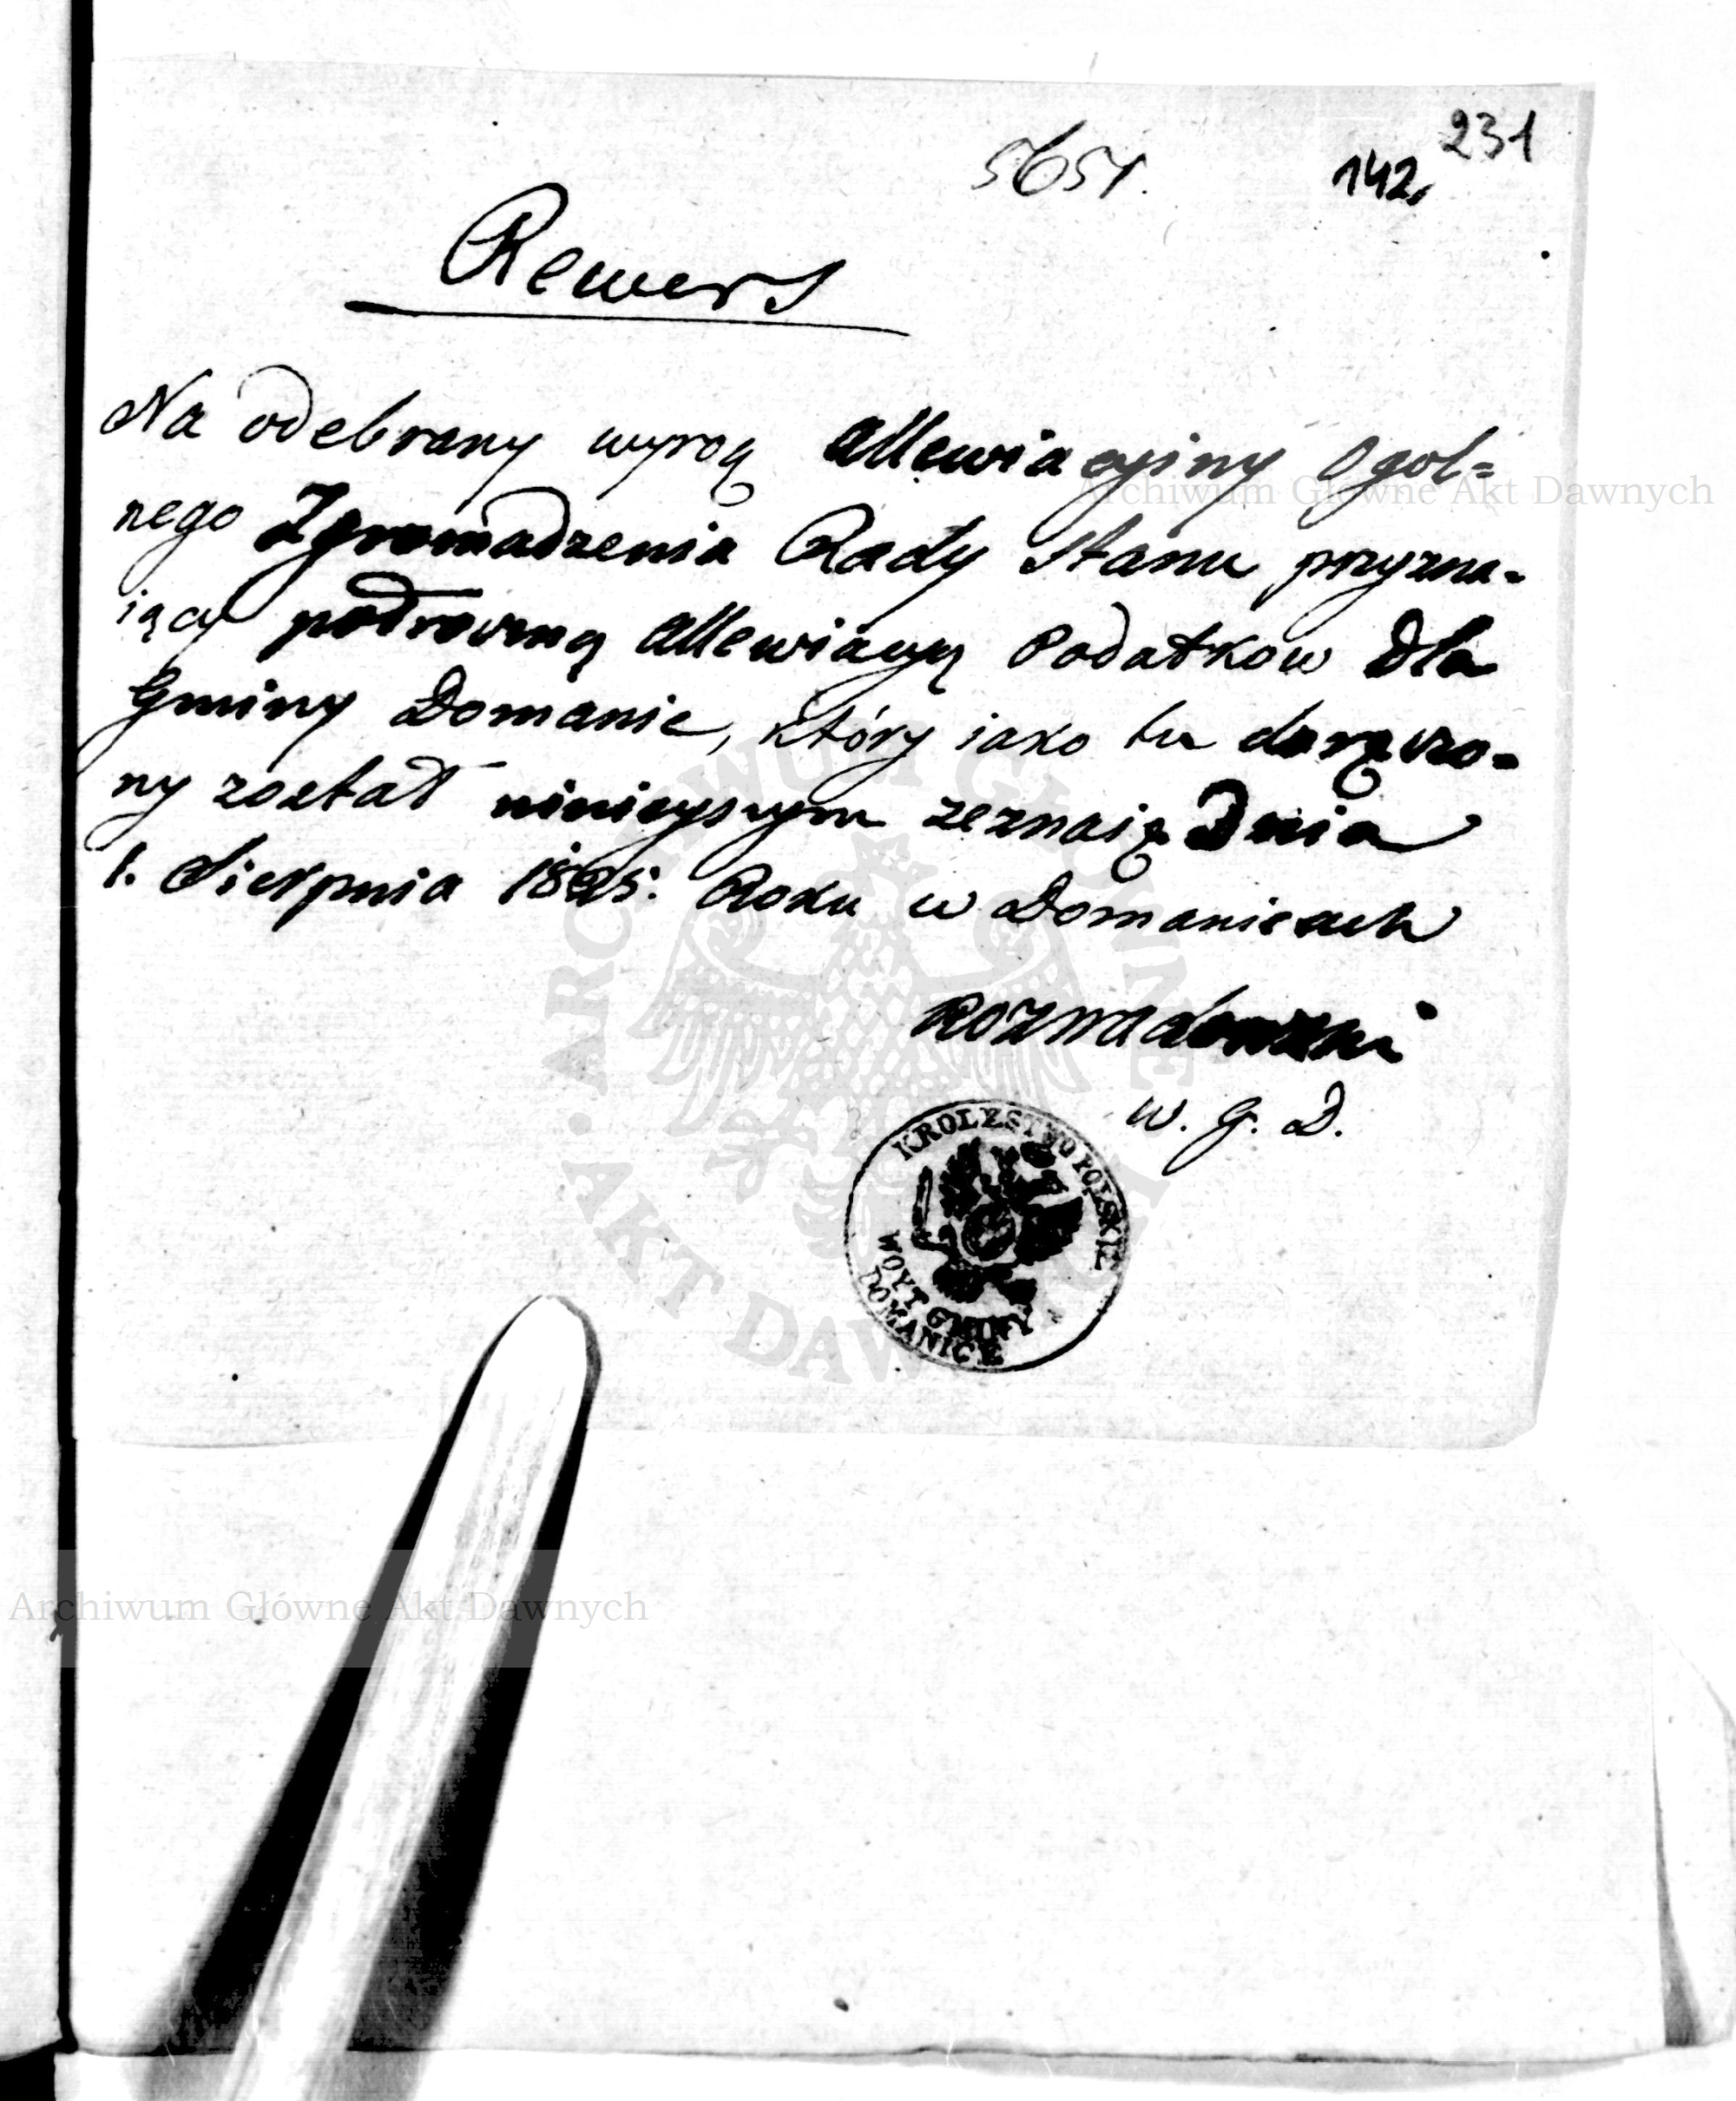 231
5651.
142.
Rewers
Na odebrany wyrok allewiacyiny Ogol=
nego Zgromadzenia Rady Stanu przyzna-
iący allewiacyą Podatkow dla
Gminy Domanic, który iako tu doręczo-
ny został ninieyszym zeznaię Dnia
1. Sierpnia 1825. Roku w Domanicach
Rozwadowski
W. G. D.
KROLESTWO POLSKIE
WOYT GMINY
DOMANICE
Archiwum Główne Akt Dawnych
ARCHIWUM GŁÓWNE AKT DAWNYCH
Archiwum Główne Akt Dawnych